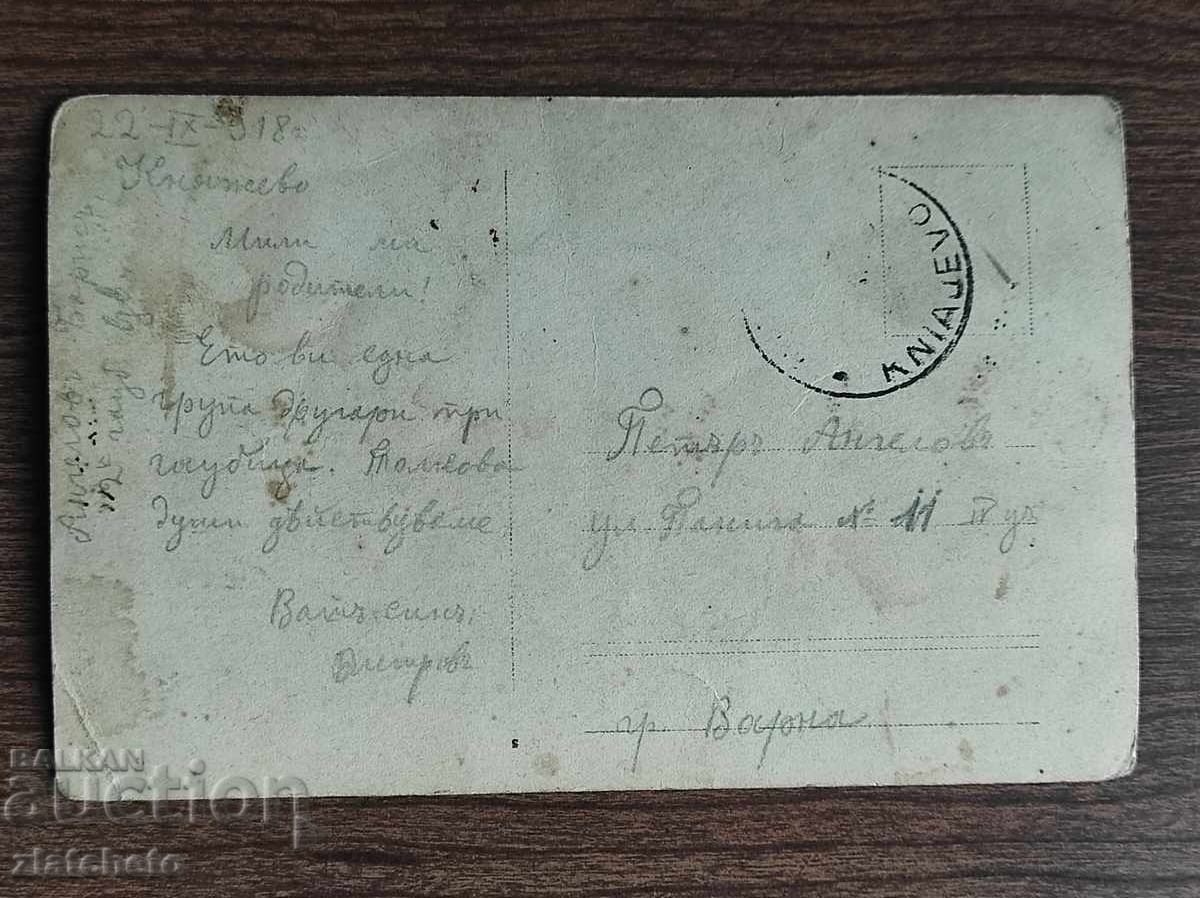 22-IX-918 г
Княжево
Мили ма
родители!
Ето ви една
група другари при
гаубица. Толкова
души действуваме
Вашъ синъ:
Ангеловъ
2 гауб взв.
KNIAJEVO
Петъръ Ангеловъ
ул Паница № 11 IV уч
гр. Варна
BALKAN
auction
zlatcheto